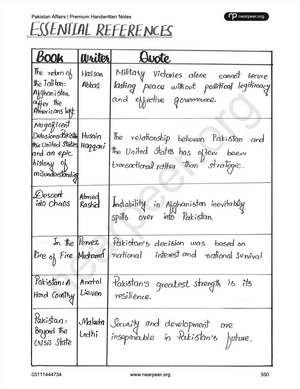 Pakistan Affairs | Premium Handwritten Notes
nearpeer.org
ESSENTIAL REFERENCES
Book Writer Quote
The return of the Taliban: Afghanistan after the Americans Left
Hassan Abbas
Military Victories alone cannot secure
lasting peace without political legitimacy
and effective governance.
Magnificent Delusions: the United States and an epic history of misunderstanding
Husain Haqqani
The relationship between Pakistan and
the United States has often been
transactional rather than strategic.
Descent into chaos
Ahmed Rashid
Instability in Afghanistan inevitably
spills over into Pakistan.
In the Line of Fire
Pervez Musharraf
Pakistan's decision was based on
national interest and national survival
Pakistan: A Hard Country
Anatol Lieven
Pakistan's greatest strength is its
resilience.
Pakistan: Beyond the Crisis State
Maleeha Lodhi
Security and development are
inseparable in Pakistan's future.
nearpeer.org
03111444734 www.nearpeer.org 550